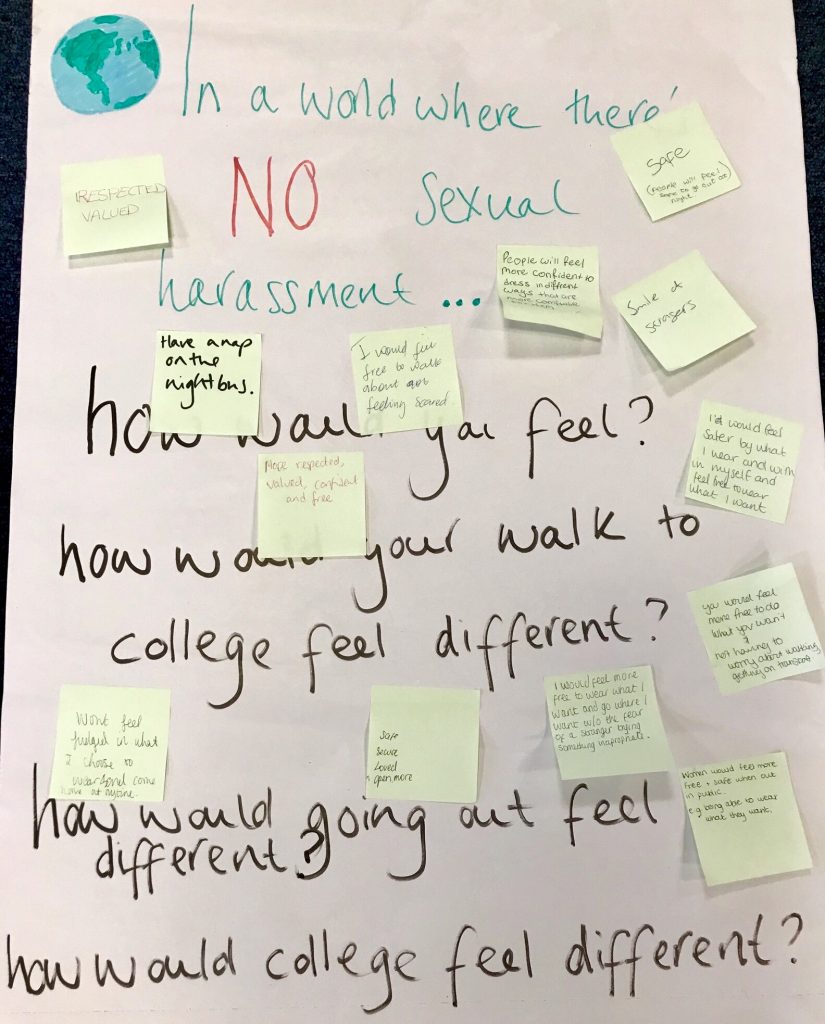 In a world where there'
NO sexual
harassment ...
RESPECTED
VALUED
SAFE
(People will feel
safe to go out at
night
People will feel
more confident to
dress in different
ways that are
more comfortable
Smile at
Have a nap
on the
night bus.
I would feel
free to walk
about not
feeling scared.
how would you feel?
More respected,
valued, confident
and free
I'd would feel
safer by what
I wear and with
in myself and
feel free to wear
what I want
how would your walk to
college feel different?
you would feel
more free to do
what you want
&
not having to
worry about walking,
getting on transport
Wont feel
in what
I choose to
wear and come
home at anytime.
Safe
secure
loved
open more
I would feel more
free to wear what I
want and go where I
want w/o the fear
of a stranger trying
something inapropriate.
Women would feel more
free + safe when out
in public.
e.g being able to wear
what they want.
how would going out feel
different?
how would college feel different?